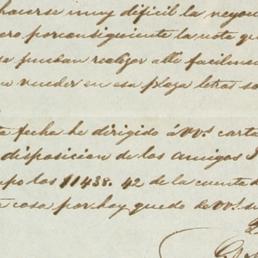 hacerse muy dificil la negoci
ero por consiguiente la nota que
se puedan realizar alli facilmen
vender en esa plaza letras so
ta fecha he dirigido á VV. carta
disposicion de los amigos
po los 11438.42 de la cuenta d
cosa por hoy quedo de VV. s